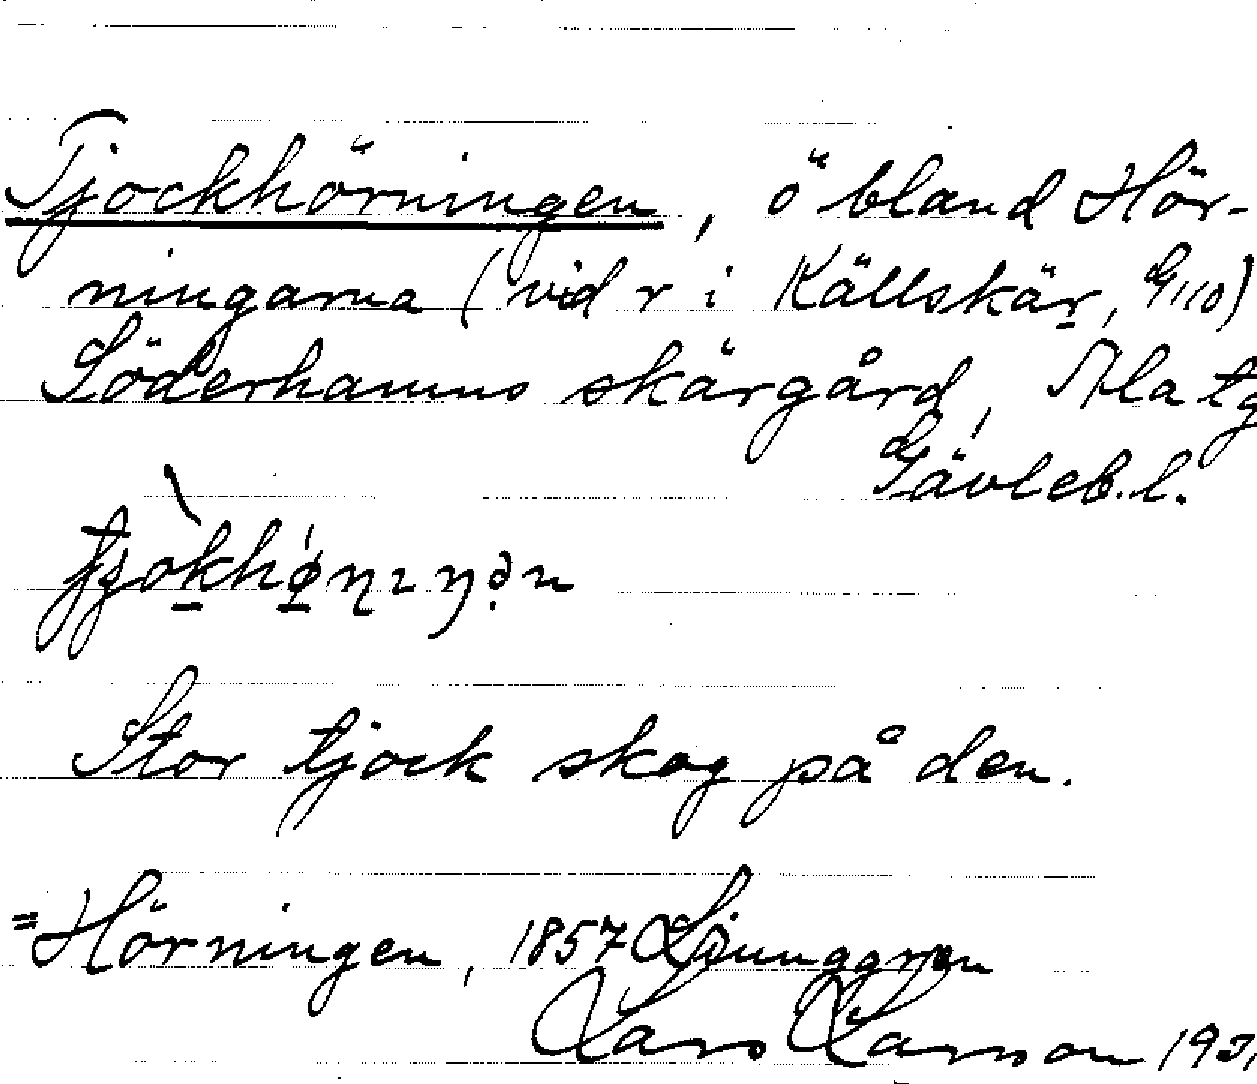 Tjockhörningen, ö bland Hör-
ningarna (vid r i Källskär, G110)
Söderhamns skärgård, Ala tg
Gävleb. l.
Stor tjock skog på den.
= Hörningen, 1857 Ljunggren
Lars Larsson